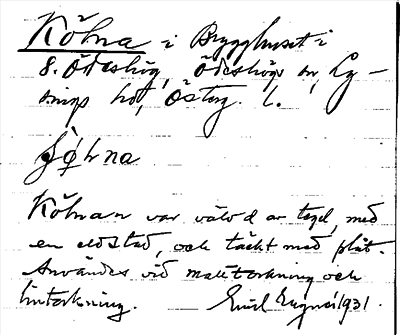 Kölna i Brygghuset i
8. Ödeshög, Ödeshögs sn, Ly-
sings hd, Österg. l.
Kölnan var välvd av tegel, med
en eldstad, och täckt med plåt.
Användes vid malttorkning och
lintorkning. Emil 1931.